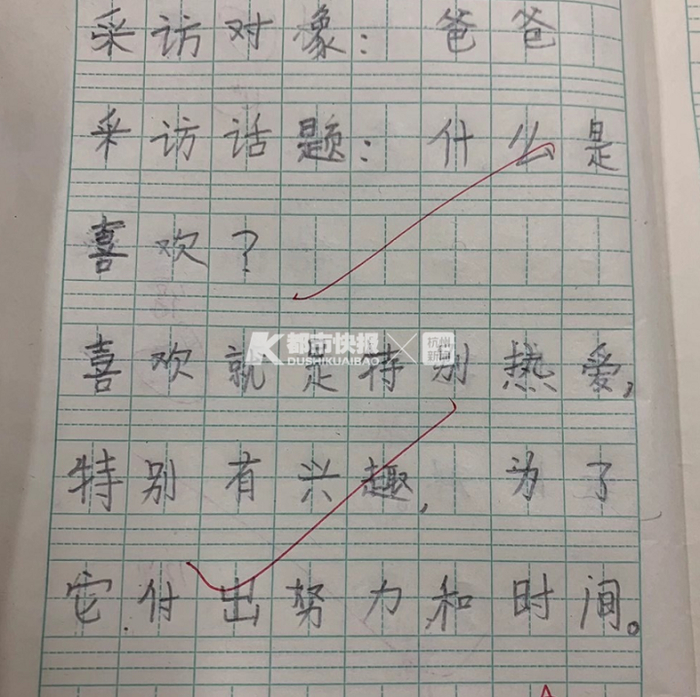 采访对像：爸爸
采访话题：什么是
喜欢？
都市快报
DUSHIKUAIBAO
杭州
新闻
喜欢就是特别热爱，
特别有兴趣，为了
它付出努力和时间。